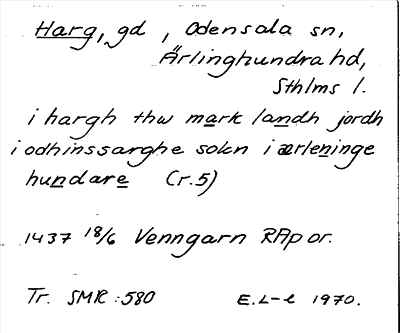 Harg, gd , Odensala sn,
Ärlinghundra hd,
Sthlms l.
i hargh thw mark landh jordh
i odhinssarghe sokn i ærleninge
hundare (r.5)
1437 18/6 Venngarn RAp or.
Tr. SMR :580 E.L-e 1970.